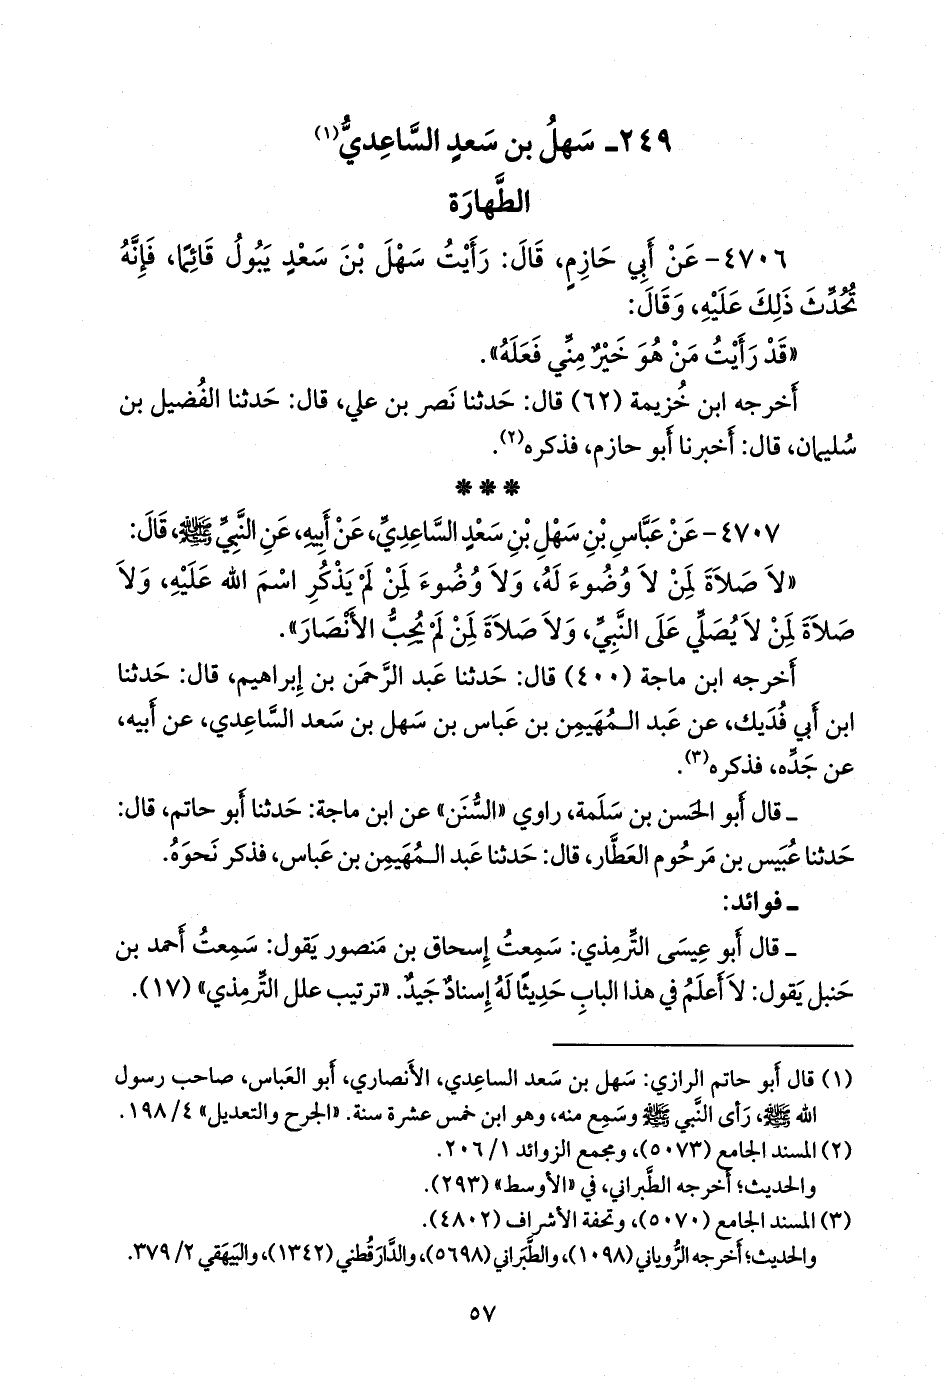 ٢٤٩ـ سَهلُ بن سَعدٍ السَّاعِديُّ(١)
الطَّهارَة
٤٧٠٦- عَنْ أَبِي حَازِمٍ، قَالَ: رَأَيْتُ سَهْلَ بْنَ سَعْدٍ يَبُولُ قَائِمًا، فَإِنَّهُ
تُحُدِّثَ ذَلِكَ عَلَيْهِ، وَقَالَ:
«قَدْ رَأَيْتُ مَنْ هُوَ خَيْرٌ مِنِّي فَعَلَهُ».
أَخرجه ابن خُزيمة (٦٢) قال: حَدثنا نَصر بن علي، قال: حَدثنا الفُضيل بن
سُليمان، قال: أَخبرنا أَبو حازم، فذكره(٢).
***
٤٧٠٧- عَنْ عَبَّاسِ بْنِ سَهْلِ بْنِ سَعْدٍ السَّاعِدِيِّ، عَنْ أَبِيهِ، عَنِ النَّبِيِّ ﷺ، قَالَ:
«لاَ صَلاَةَ لِمَنْ لاَ وُضُوءَ لَهُ، وَلاَ وُضُوءَ لِمَنْ لَمْ يَذْكُرِ اسْمَ الله عَلَيْهِ، وَلاَ
صَلاَةَ لِمَنْ لاَ يُصَلِّي عَلَى النَّبِيِّ، وَلاَ صَلاَةَ لِمَنْ لَمْ يُحِبُّ الأَنْصَارَ».
أَخرجه ابن ماجة (٤٠٠) قال: حَدثنا عَبد الرَّحمَن بن إِبراهيم، قال: حَدثنا
ابن أَبي فُدَيك، عن عَبد المُهَيمِن بن عَباس بن سَهل بن سَعد السَّاعِدي، عن أَبيه،
عن جَدِّه، فذكره(٣).
ـ قال أَبو الحَسن بن سَلَمة، راوي «السُّنَن» عن ابن ماجة: حَدثنا أَبو حاتم، قال:
حَدثنا عُبَيس بن مَرحُوم العَطَّار، قال: حَدثنا عَبد المُهَيمِن بن عَباس، فذكر نَحوَهُ.
ـ فوائد:
ـ قال أَبو عِيسَى التِّرمِذي: سَمِعتُ إِسحاق بن مَنصور يَقول: سَمِعتُ أَحمد بن
حَنبل يَقول: لاَ أَعلَمُ في هذا البابِ حَدِيثًا لَهُ إِسنادٌ جَيدٌ. «ترتيب علل التِّرمِذي» (١٧).
(١) قال أَبو حاتم الرازي: سَهل بن سَعد الساعِدي، الأَنصاري، أَبو العَباس، صاحب رسول
الله ﷺ، رَأى النَّبي ﷺ وسَمِع منه، وهو ابن خمس عشرة سنة. «الجرح والتعديل» ٤/ ١٩٨.
(٢) المسند الجامع (٥٠٧٣)، ومجمع الزوائد ١/ ٢٠٦.
والحديث؛ أَخرجه الطَّبراني، في «الأَوسط» (٢٩٣).
(٣) المسند الجامع (٥٠٧٠)، وتحفة الأَشراف (٤٨٠٢).
والحديث؛ أَخرجه الرُّوياني (١٠٩٨)، والطَّبَراني (٥٦٩٨)، والدَّارَقُطني (١٣٤٢)، والبَيهَقي ٢/ ٣٧٩.
٥٧